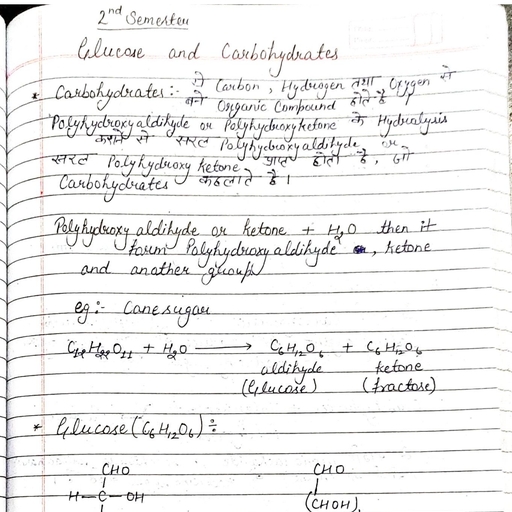 2nd Semester
Glucose and Carbohydrates
* Carbohydrates :- ये Carbon, Hydrogen तथा Oxygen से
बने Organic Compound होते है
Polyhydroxy aldihyde or Polyhydroxyketone के Hydralysis
कराने से सरल Polyhydroxy aldihyde or
सरल Polyhydroxy ketone प्राप्त होती है, जो
Carbohydrates कहलाते है।
Polyhydroxy aldihyde or ketone + H2O then it
form Polyhydroxy aldihyde, ketone
and another group
eg:- Canesugar
C12H22O11 + H2O ⟶ C6H12O6 + C6H12O6
aldihyde ketone
(Glucose) (fractose)
* Glucose (C6H12O6) ÷
CHO CHO
H-C-OH (CHOH)